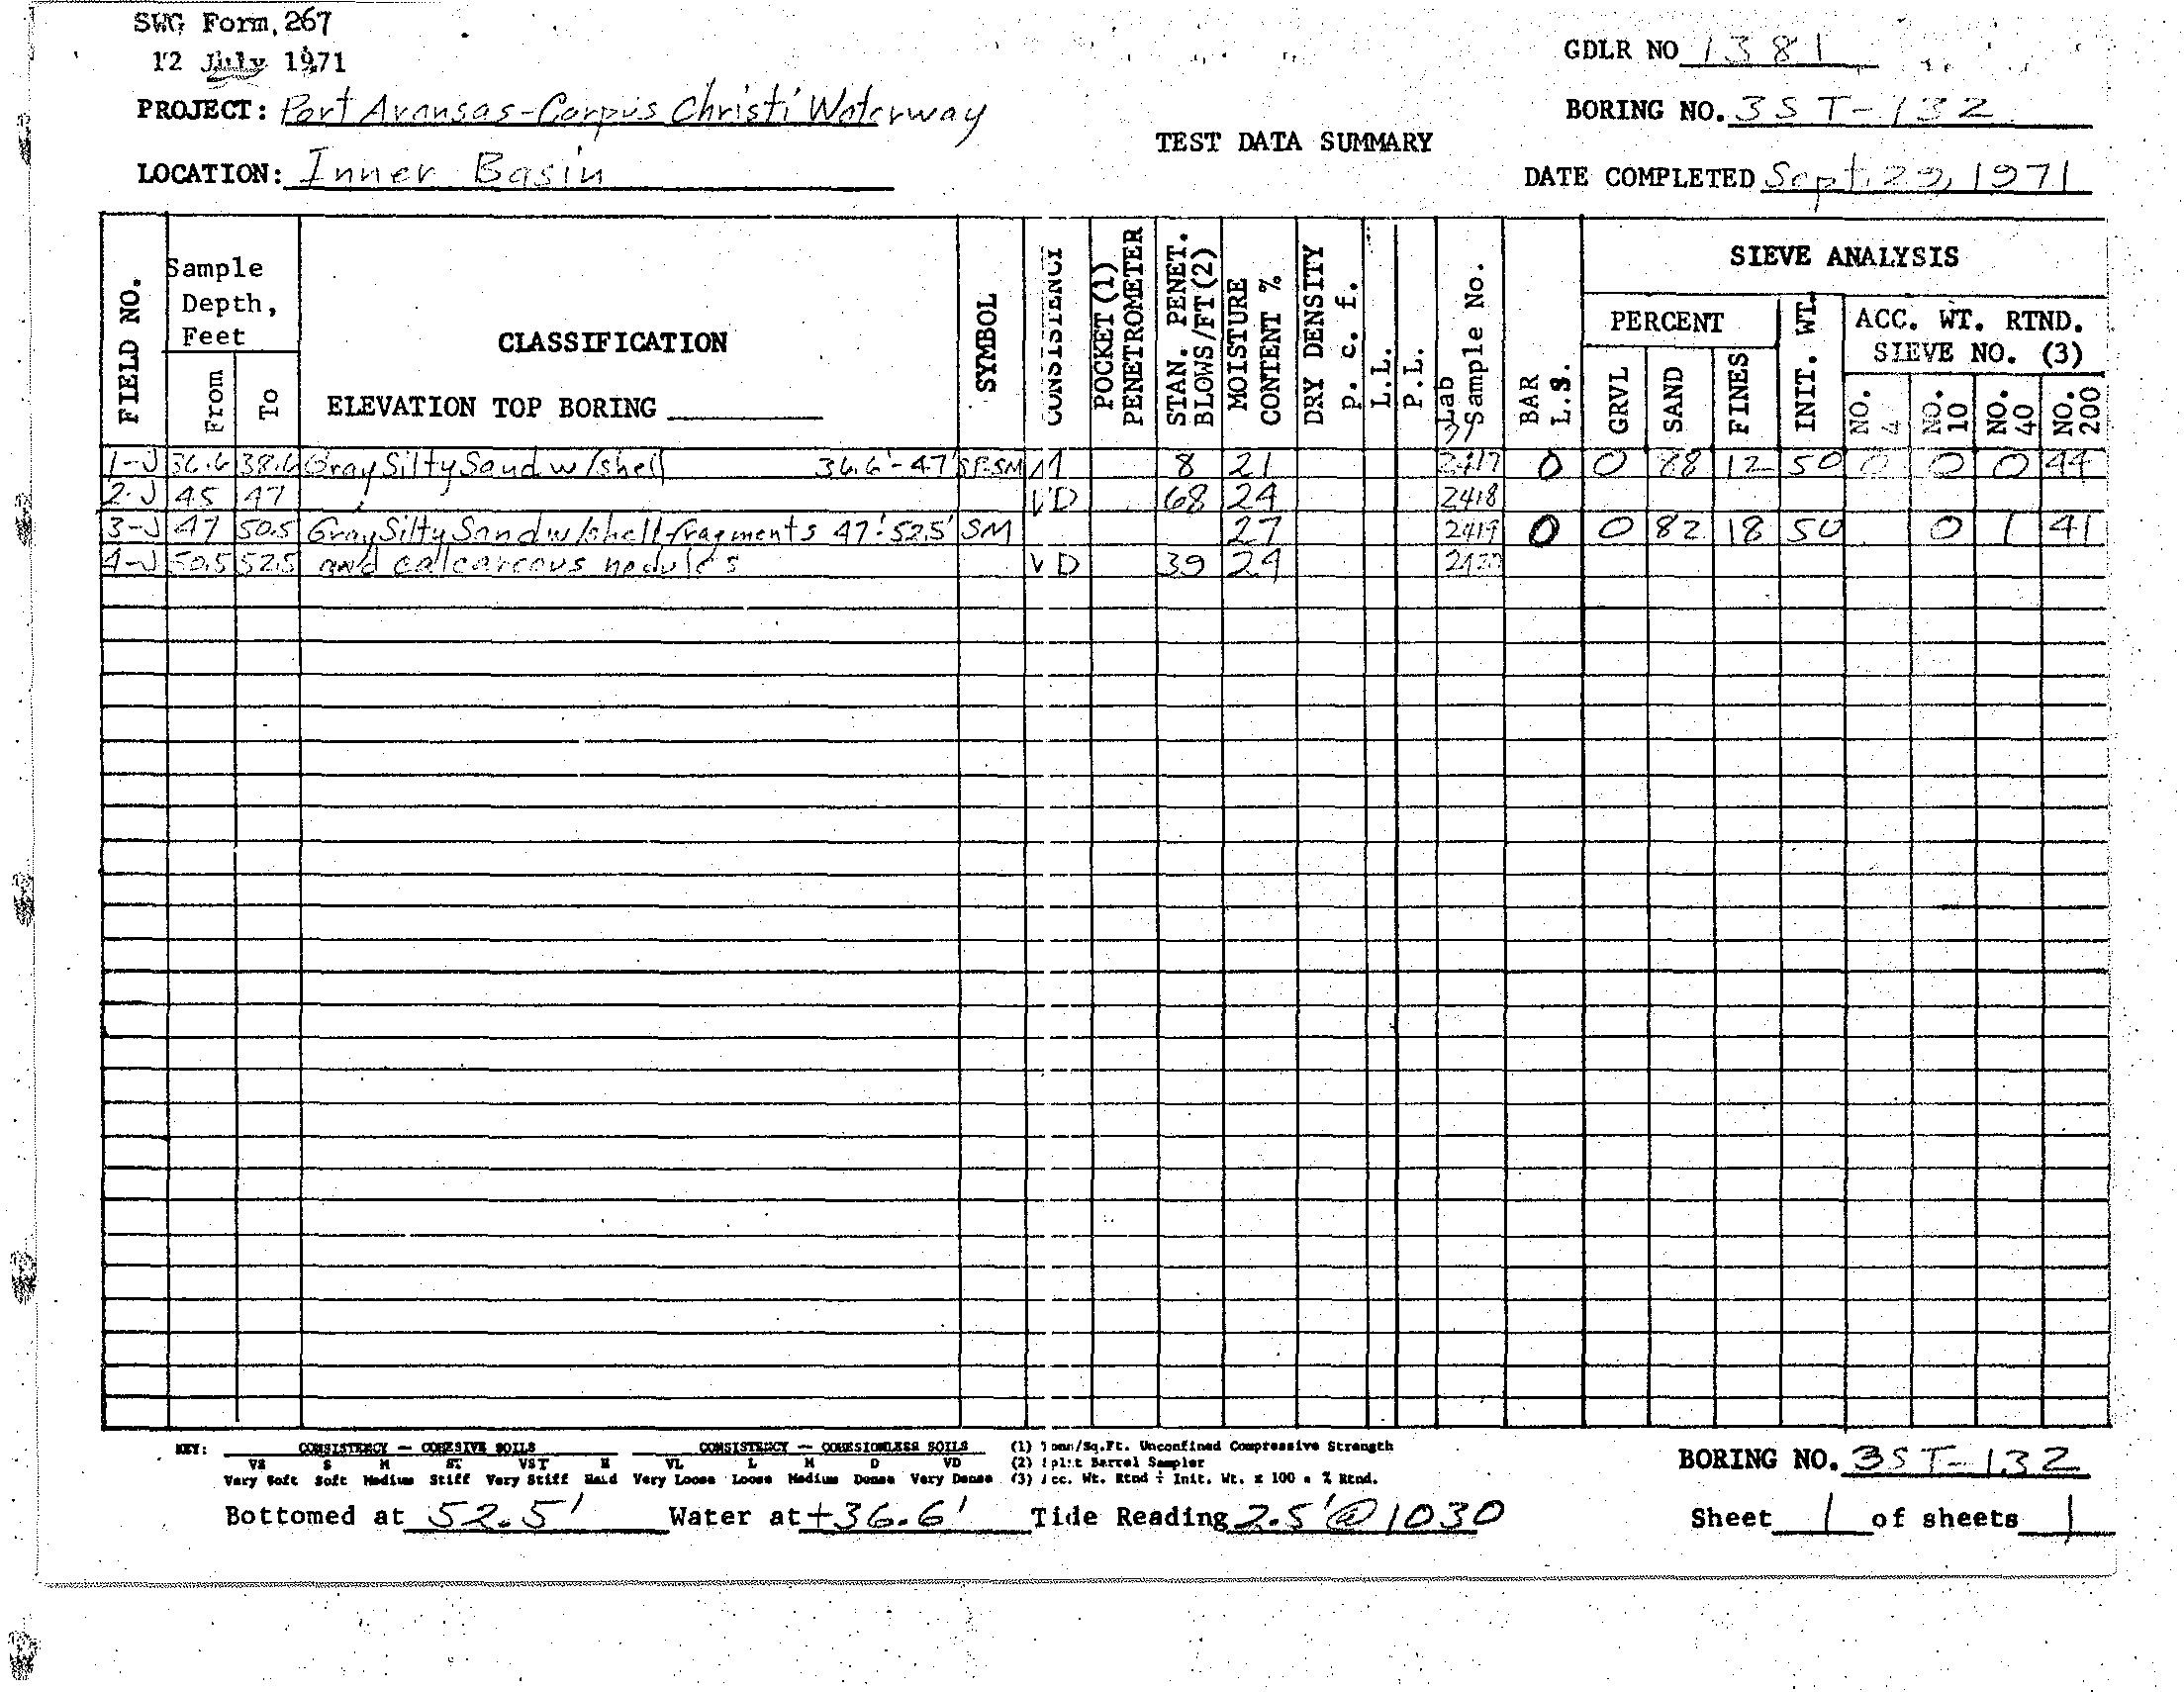 SWG Form, 267
12 July 1971
GDLR NO 1381
PROJECT: Port Aransas-Corpus Christi Waterway
BORING NO. 3ST-132
TEST DATA SUMMARY
LOCATION: Inner Basin
DATE COMPLETED Sept. 29, 1971
FIELD NO.
Sample Depth, Feet
From
To
CLASSIFICATION
ELEVATION TOP BORING
SYMBOL
CONSISTENCY
POCKET (1) PENETROMETER
STAN. PENET. BLOWS/FT (2)
MOISTURE CONTENT %
DRY DENSITY p. c. f.
L.L.
P.L.
Lab Sample No.
BAR L.S.
SIEVE ANALYSIS
PERCENT
GRVL
SAND
FINES
INIT. WT.
ACC. WT. RTND. SIEVE NO. (3)
NO. 4
NO. 10
NO. 40
NO. 200
1-J 36.6 38.6 Gray Silty Sand w/shell 36.6'-47' SP-SM M 8 21 2417 0 0 88 12 50 0 0 0 44
2-J 45 47 VD 68 24 2418
3-J 47 50.5 Gray Silty Sand w/shell fragments 47'-52.5' SM 27 2419 0 0 82 18 50 0 1 41
4-J 50.5 52.5 and calcareous nodules VD 39 24 2420
KEY: CONSISTENCY — COHESIVE SOILS CONSISTENCY — COHESIONLESS SOILS (1) Tons/Sq.Ft. Unconfined Compressive Strength
VS S M ST VST H VL L M D VD (2) Split Barrel Sampler
Very Soft Soft Medium Stiff Very Stiff Hard Very Loose Loose Medium Dense Very Dense (3) Acc. Wt. Rtnd ÷ Init. Wt. x 100 = % Rtnd.
BORING NO. 3ST-132
Bottomed at 52.5' Water at +36.6' Tide Reading 2.5' @ 1030
Sheet 1 of sheets 1